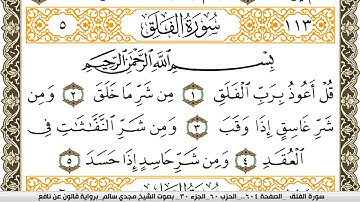 ٥ سُورَةُ الفَلَقِ ١١٣
بِسْمِ اللَّهِ الرَّحْمَٰنِ الرَّحِيمِ
قُلْ أَعُوذُ بِرَبِّ الْفَلَقِ ١ مِن شَرِّ مَا خَلَقَ ٢ وَمِن
شَرِّ غَاسِقٍ إِذَا وَقَبَ ٣ وَمِن شَرِّ النَّفَّٰثَٰتِ فِي
الْعُقَدِ ٤ وَمِن شَرِّ حَاسِدٍ إِذَا حَسَدَ ٥
سورة الفلق _ الصفحة ٦٠٤ _ الحزب ٦٠ _ الجزء ٣٠ _ بصوت الشيخ مجدي سالم _ برواية قالون عن نافع